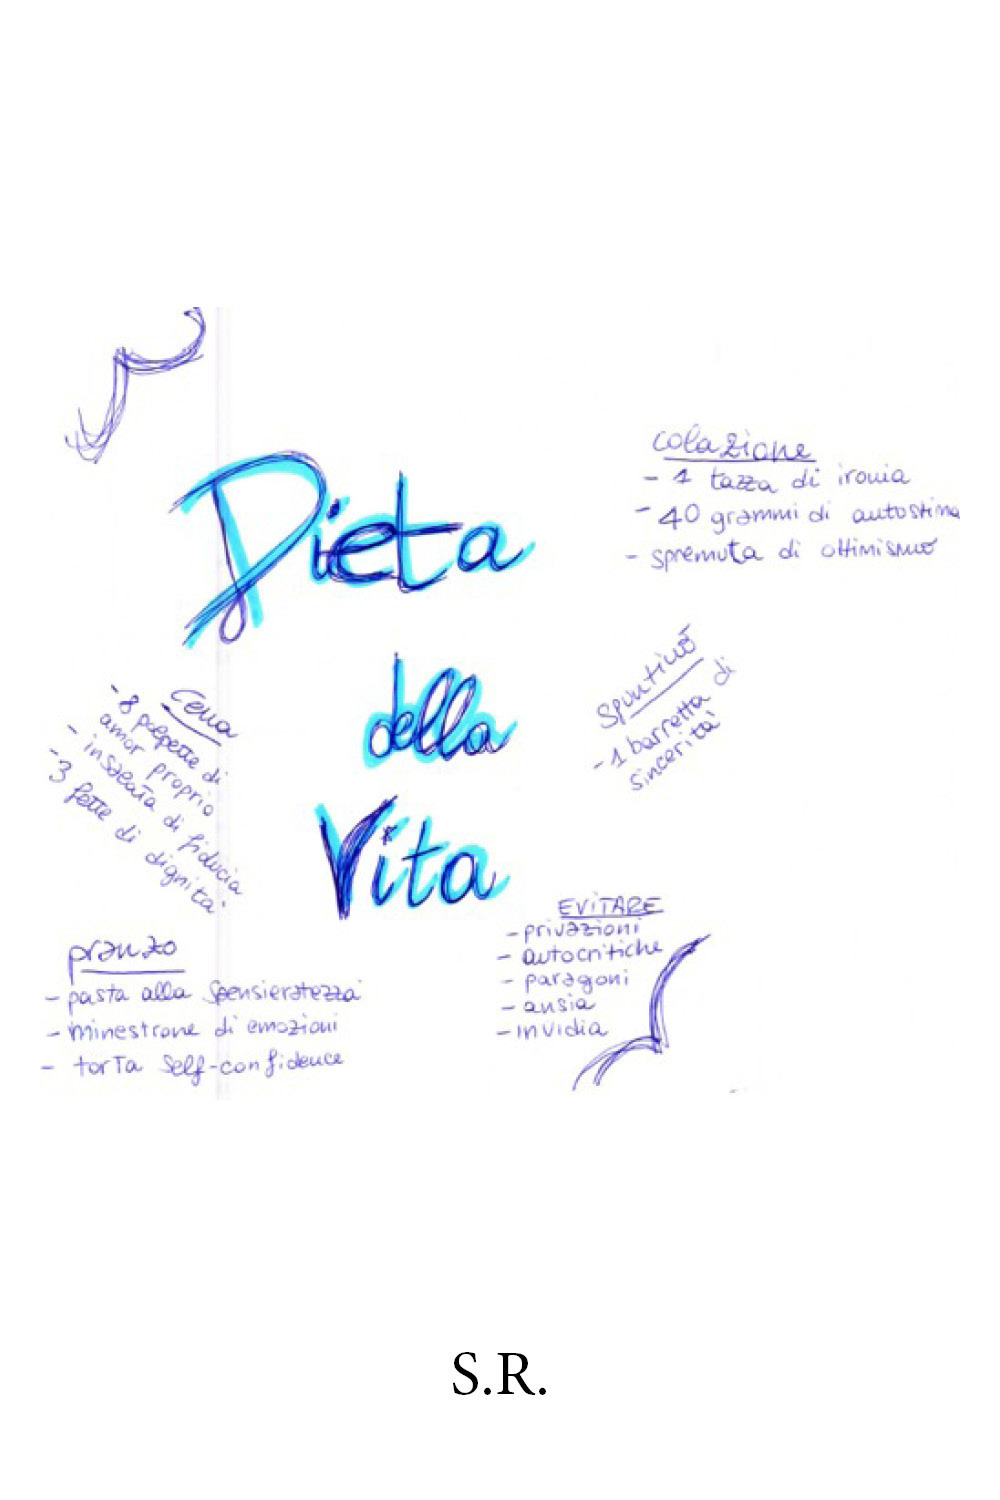 Dieta
della
Vita
colazione
- 1 tazza di ironia
- 40 grammi di autostima
- spremuta di ottimismo
Spuntino
- 1 barretta di
sincerità
Cena
- 8 polpette di
amor proprio
- insalata di fiducia
- 3 fette di dignità
pranzo
- pasta alla Spensieratezza
- minestrone di emozioni
- torta Self-confidence
EVITARE
- privazioni
- autocritiche
- paragoni
- ansia
- invidia
S.R.